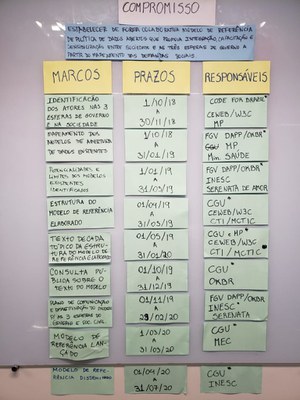 COMPROMISSO
ESTABELECER DE FORMA COLABORATIVA MODELO DE REFERÊNCIA
DE POLÍTICA DE DADOS ABERTOS QUE PROMOVA INTEGRAÇÃO, CAPACITAÇÃO E
SENSIBILIZAÇÃO ENTRE SOCIEDADE E AS TRÊS ESFERAS DE GOVERNO A
PARTIR DO MAPEAMENTO DAS DEMANDAS SOCIAIS
MARCOS
PRAZOS
RESPONSÁVEIS
IDENTIFICAÇÃO
DOS ATORES NAS 3
ESFERAS DE GOVERNO
E NA SOCIEDADE
1/10/18
A
30/11/18
CODE FOR BRASIL*
CEWEB/W3C
MP
MAPEAMENTO DOS
MODELOS DE ABERTURA
DE DADOS EXISTENTES
1/10/18
A
31/01/19
FGV DAPP/OKBR*
CGU MP
MIN. SAÚDE
IDENTIFICADOS
1/01/19
A
31/03/19
FGV DAPP/OKBR*
INESC
SERENATA DE AMOR
ESTRUTURA DO
MODELO DE REFERÊNCIA
ELABORADO
01/04/19
A
31/05/19
CGU*
CEWEB/W3C
CTI/MCTIC
TEXTO DE CADA
TÓPICO DA ESTRUTURA
DO MODELO DE
REFERÊNCIA ELABORADO
01/05/19
A
CGU e MP*
CEWEB/W3C
CTI/MCTIC
CONSULTA PÚ-
BLICA SOBRE O
TEXTO DO MODELO
01/10/19
A
31/12/19
CGU*
OKBR
PLANO DE COMUNICAÇÃO
01/11/19
A
FGV DAPP/OKBR
INESC*
SERENATA
MODELO DE
REFERÊNCIA LAN-
ÇADO
1/03/20
A
31/03/20
CGU*
MEC
MODELO DE REFE-
RÊNCIA DISSEMINADO
01/04/20
A
31/07/20
CGU*
INESC